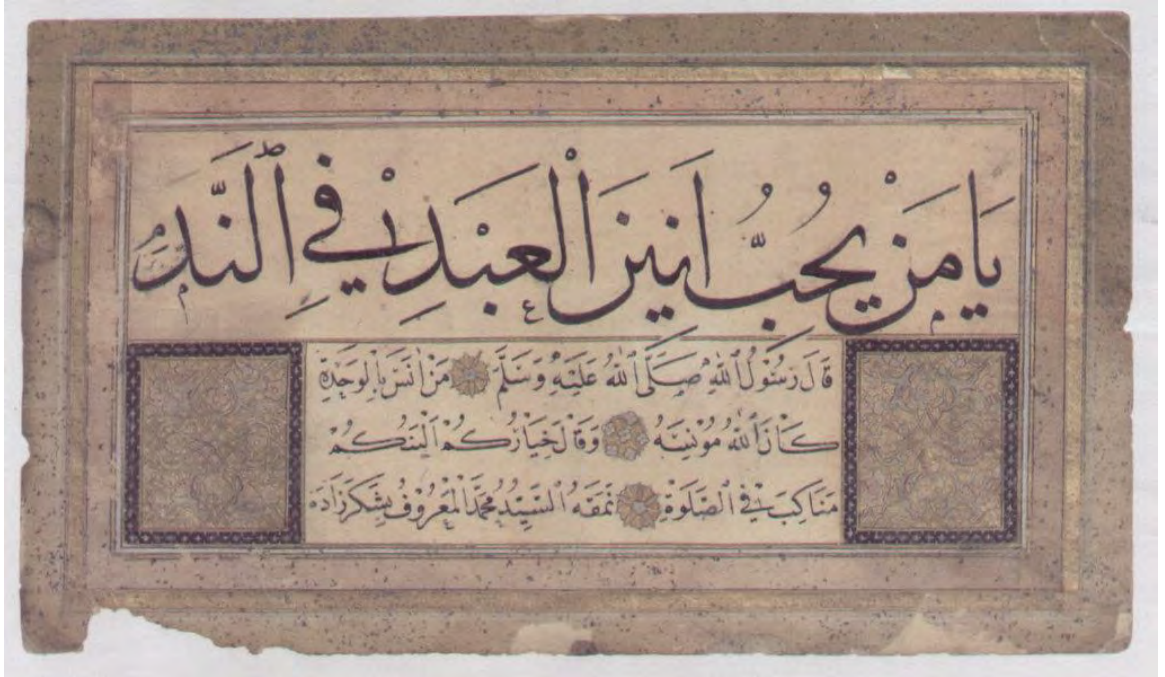 يَا مَنْ يُحِبُّ اَنِينَ الْعَبْدِ فِي النَّدَمِ
قَالَ رَسُولُ اللّٰهِ صَلَّى اللّٰهُ عَلَيْهِ وَسَلَّمَ مَنْ اَنَسَ بِالْوَحْدَةِ
كَانَ اللّٰهُ مُونِسَهُ وَقَالَ خِيَارُكُمْ اَلْيَنُكُمْ
مَنَاكِبَ فِي الصَّلٰوةِ نَمَقَهُ السَّيِّدُ مُحَمَّدُ الْمَعْرُوفُ بِشَكَرْزَادَه